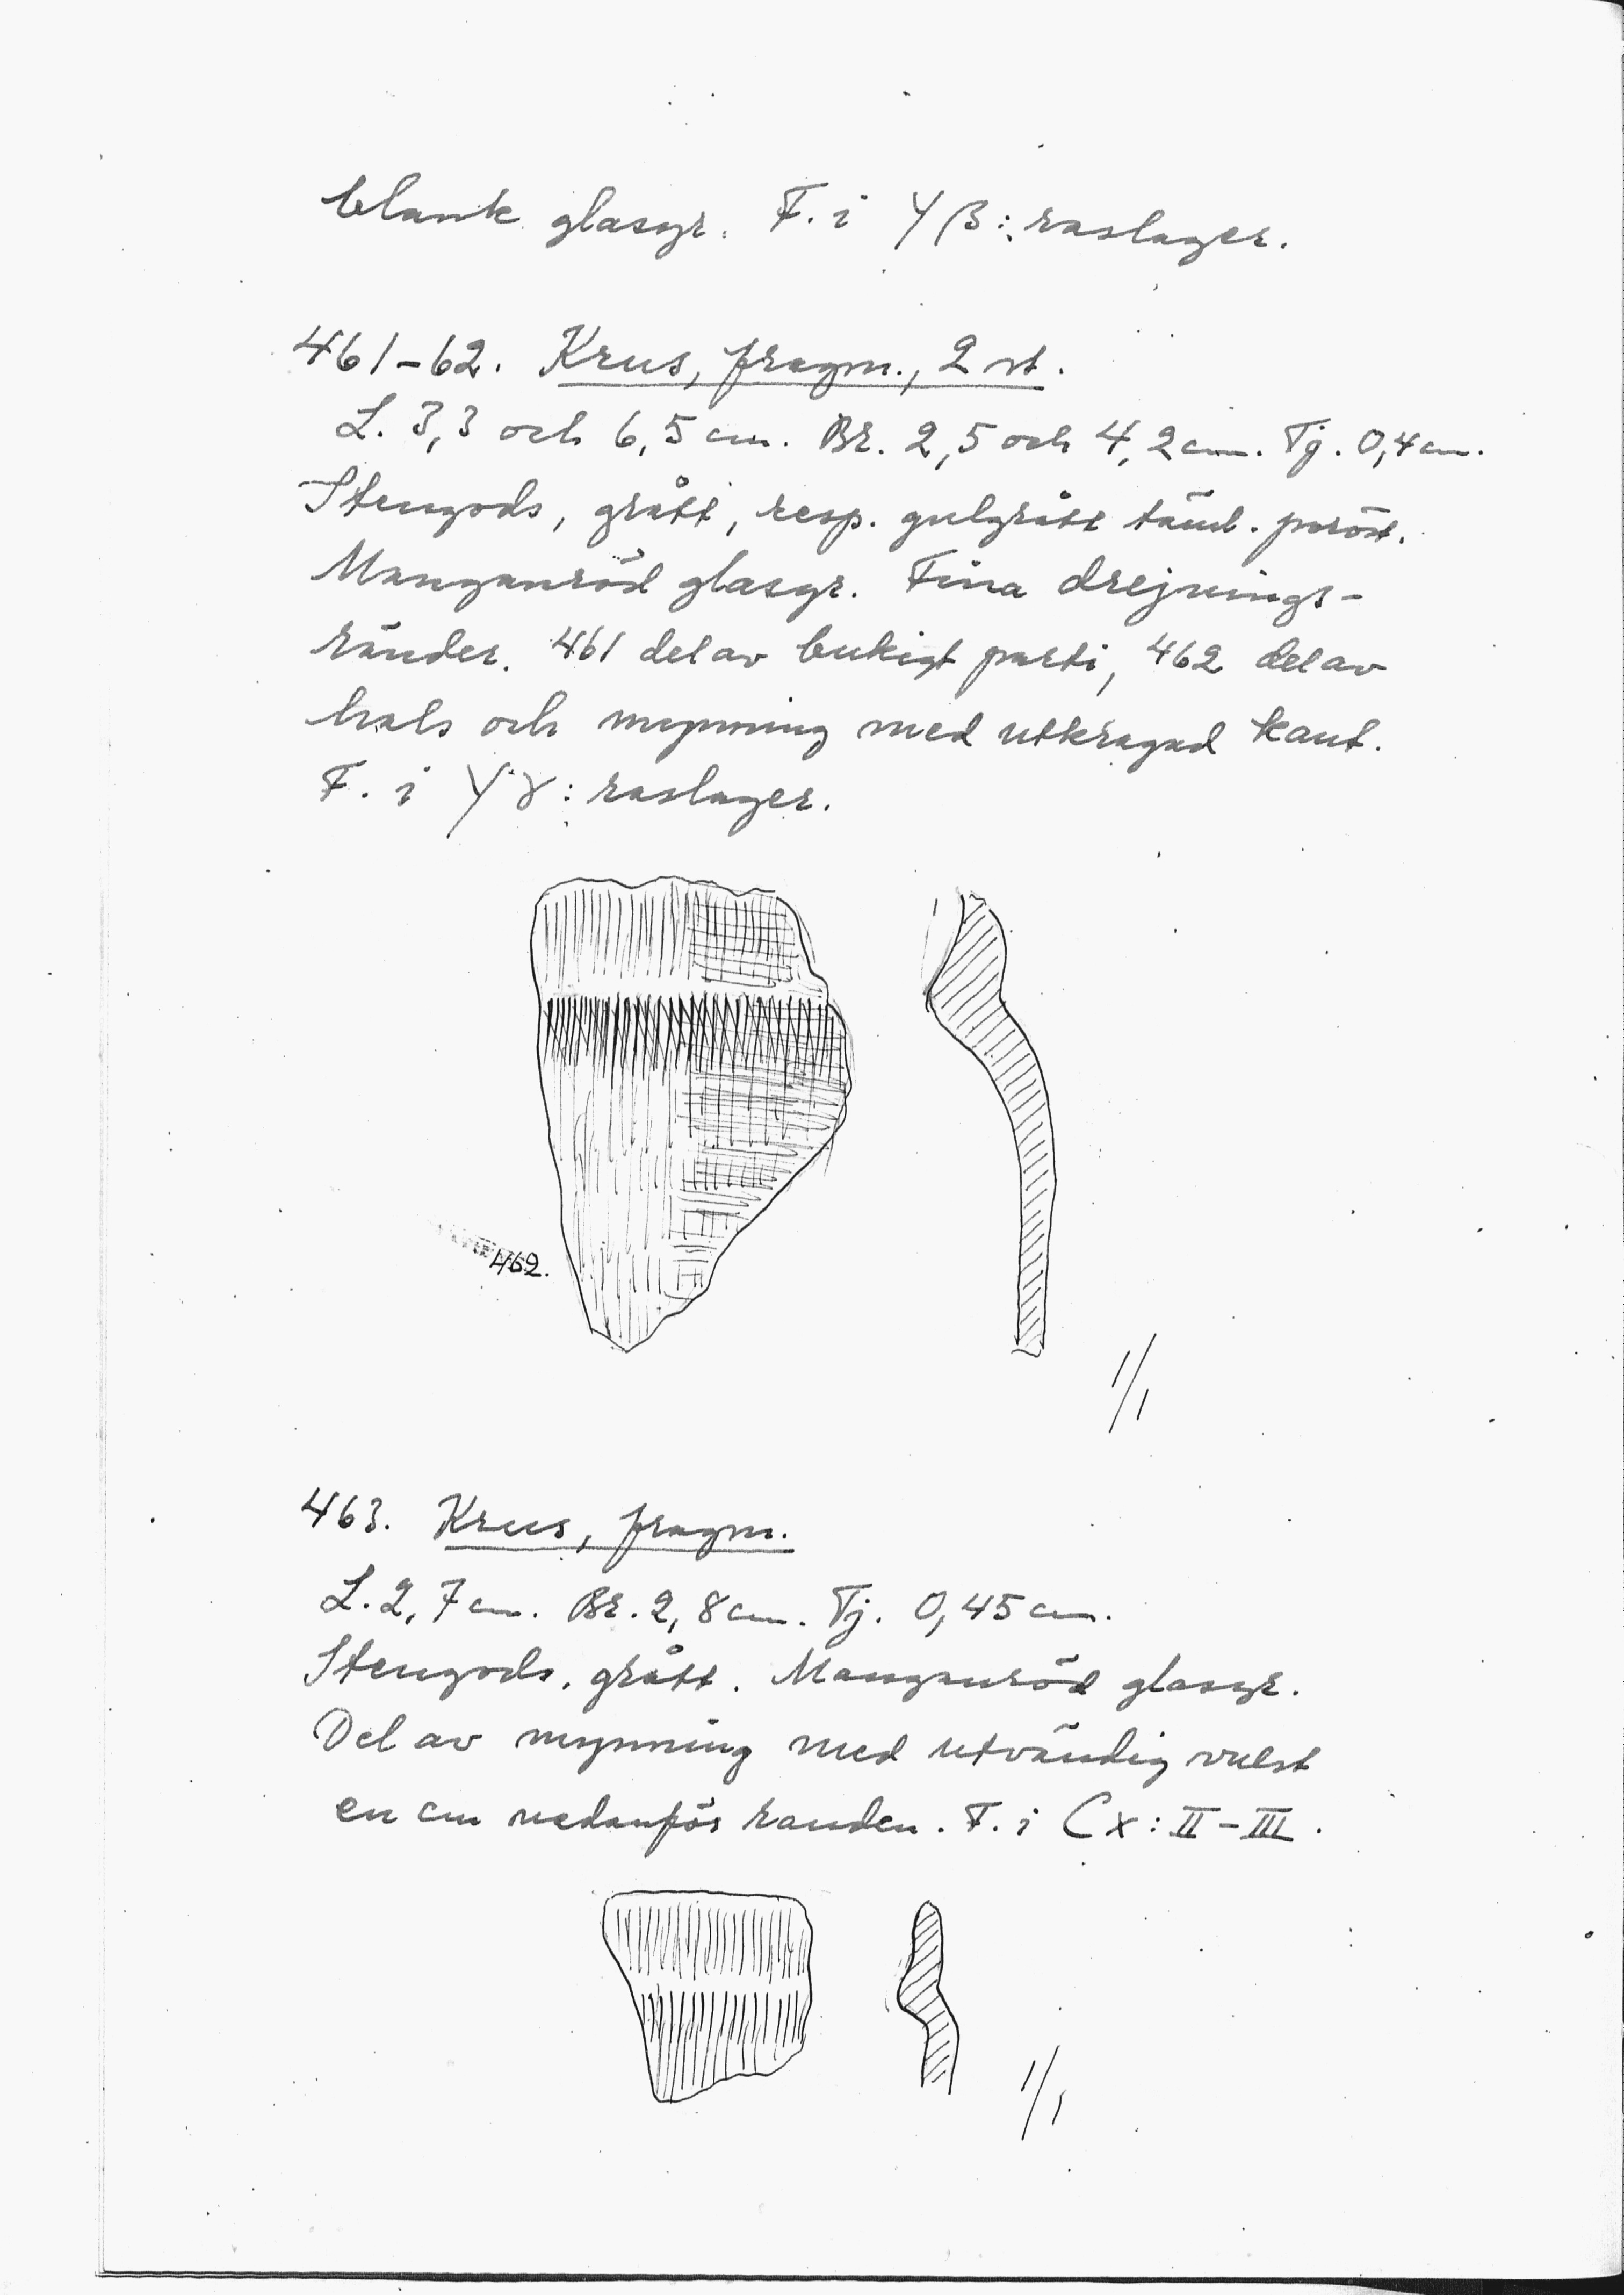 blank glasyr. F. i Yβ: raslager.
461-62. Krus, fragm., 2 st.
L. 3,3 och 6,5 cm. Br. 2,5 och 4,2 cm. Tj. 0,4 cm.
Stengods, grått, resp. gulgrått täml. poröst.
Manganröd glasyr. Fina drejnings-
ränder. 461 del av bukigt parti, 462 del av
hals och mynning med utkragad kant.
F. i Yγ: raslager.
462.
1/1
463. Krus, fragm.
L. 2,7 cm. Br. 2,8 cm. Tj. 0,45 cm.
Stengods, grått. Manganröd glasyr.
Del av mynning med utvändig vulst
en cm nedanför randen. F. i Cx: II-III.
1/1